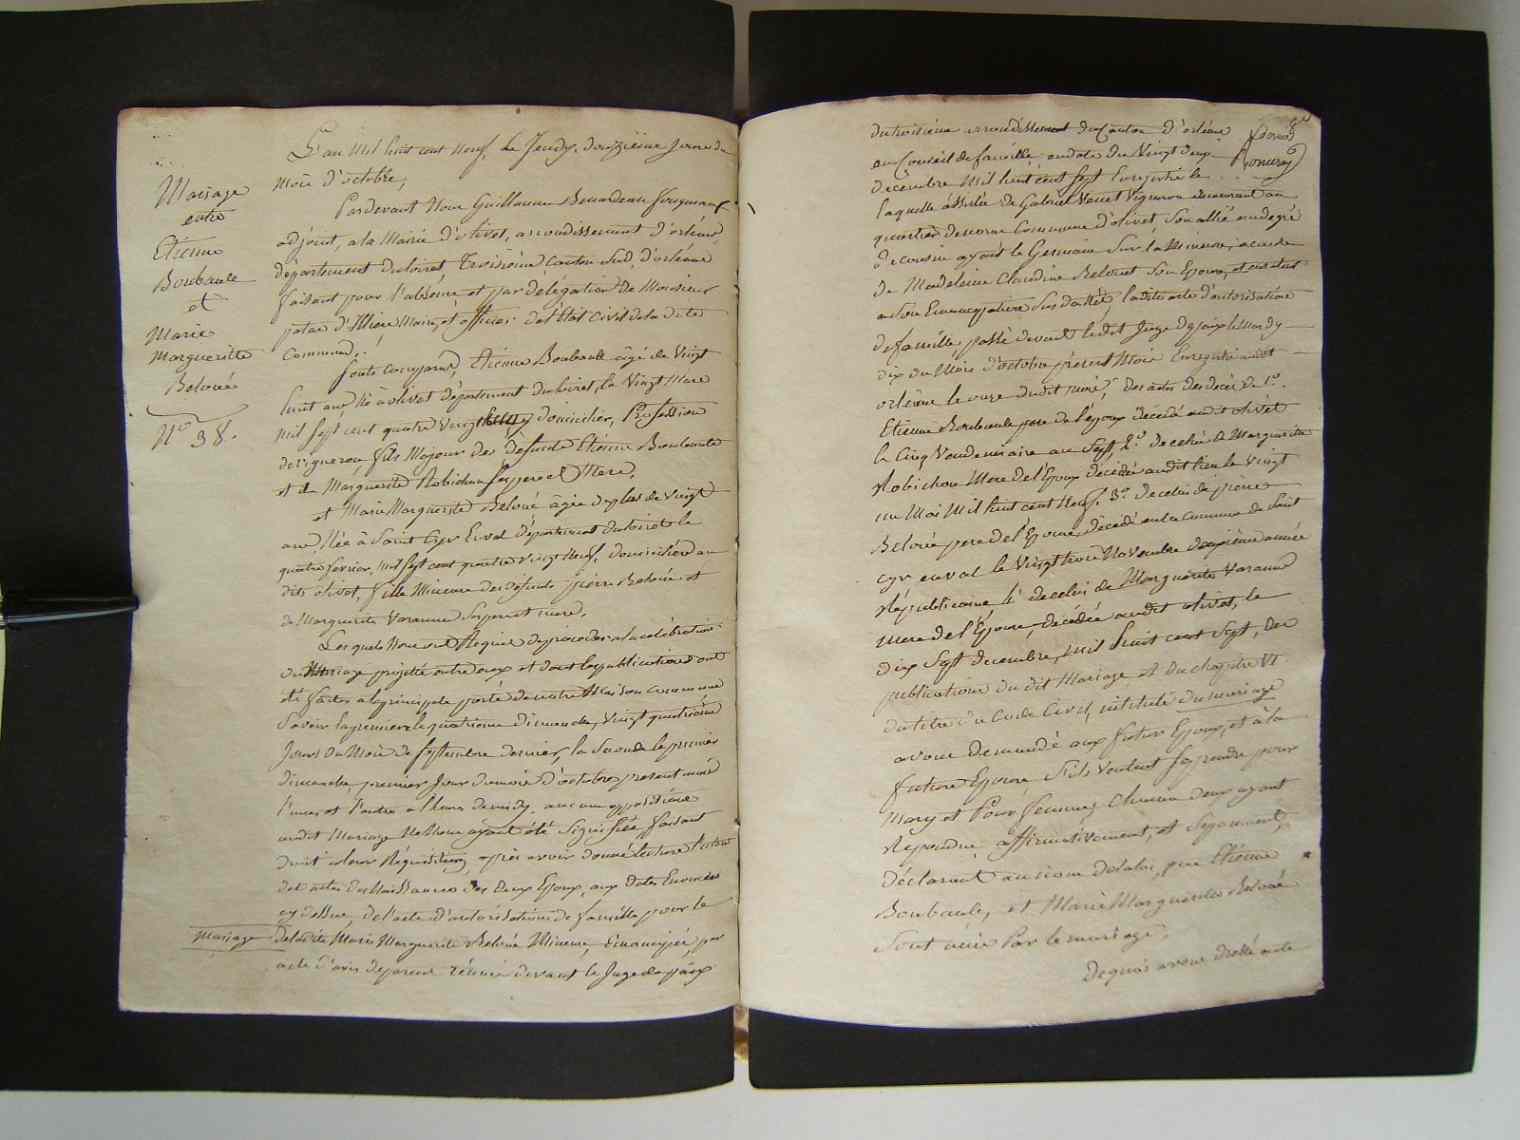 Mariage
entre
Etienne
Boubault
et
Marie
Margueritte
Belouée
N.º 38.
L'an Mil huit cent Neuf, Le Jeudy, douzième Jour du
Mois d'octobre,
Pardevant Nous Guillaume
adjoint, a la Mairie d'olivet, arrondissement d'orléans,
département duloiret, troisieme Canton Sud, d'orléans
faisant pour l'absence et par délégation de Monsieur
Maire, et officier de l'Etat Civil de la dite
Commune,
Sont comparus, Etienne Boubault âgé de Vingt
huit ans, Né a olivet département duloiret, le Vingt Mars
Mil Sept cent quatre vingt domicilier, Profession
de vigneron fils Majeur de defunts Etienne Boubault
et de Marguerite Robichon Ses pere et Mere.
et Marie Marguerite Beloué âgée de plus de Vingt
ans, Née à Saint Cyr En val département duloiret le
quatre fevrier, Mil Sept cent quatre vingt Neuf, domiciliée au
dit olivet, fille Mineure des defunts pierre Belouée et
de Marguerite Varanne Ses pere et mere.
Lesquels Nous ont Requis de proceder a la célébration
du Mariage projetté entre eux et dont les publications ont
été faites a la principale porte de notre Maison commune
Savoir la premiere le quatrieme dimanche, Vingt quatrième
Jour du Mois de Septembre dernier, la Seconde le premier
dimanche, premier Jour du mois d'octobre present mois
l'une et l'autre a l'heure de midy, aucune opposition
audit Mariage Ne Nous ayant été Signifiée, faisant
droit a leur Réquisition, après avoir donné lecture
des actes de Naissances des deux Epoux, aux dates Enoncées
cy dessus, de l'acte d'autorisation de famille pour le
Mariage De ladite Marie Marguerite Belouée Mineure, émancipée, par
acte d'avis de parens réunis devant le Juge de paix
du troisieme arrondissement du Canton d'orléans
en Conseil de famille en date du Vingt deux
decembre Mil huit cent Sept Enregistré le . . .
laquelle assistée de Gabriel Venet Vigneron demeurant au
quartier de Commune d'olivet, Son allié au degré
de cousin ayant le Germain Sur la Mineure, à cause
de Madeleine Claudine Belouet Son Epouse, et curateur
a Son Emancipation Susdattée, ladite acte d'autorisation
de famille, passé devant ledit Juge de paix le Mardy
dix du Mois d'octobre présent Mois Enregistré audit
orléans le onze dudit mois, des actes des decès de 1.º
Etienne Boubault pere de l'époux décédé audit olivet
le Cinq Vendemiaire an Sept, 2.º de celui de Marguerite
Robichon Mere de l'Epoux décédée audit lieu le vingt
un Mai Mil huit cent Neuf. 3.º de celui de pierre
Belouée pere de l'Epouse, décédé en la commune de Saint
cyr en val le Vingt trois Novembre deuxième année
Républicaine, 4.º de celui de Marguerite Varanne
Mere de l'Epouse, décédée audit olivet, le
dix Sept decembre, mil huit cent Sept, des
publications du dit Mariage, et du chapitre VI
du titre du Code Civil, intitulé du mariage
avons demandé aux futur Epoux, et à la
future Epouse, S'ils Veulent Se prendre pour
Mary et Pour femme, Chacun d'eux ayant
Répondu affirmativement, et Séparément,
déclarons au nom de la loi, que Etienne
Boubault, et Marie Marguerite Belouée
Sont unis Par le mariage.
De quoi avons dressé acte